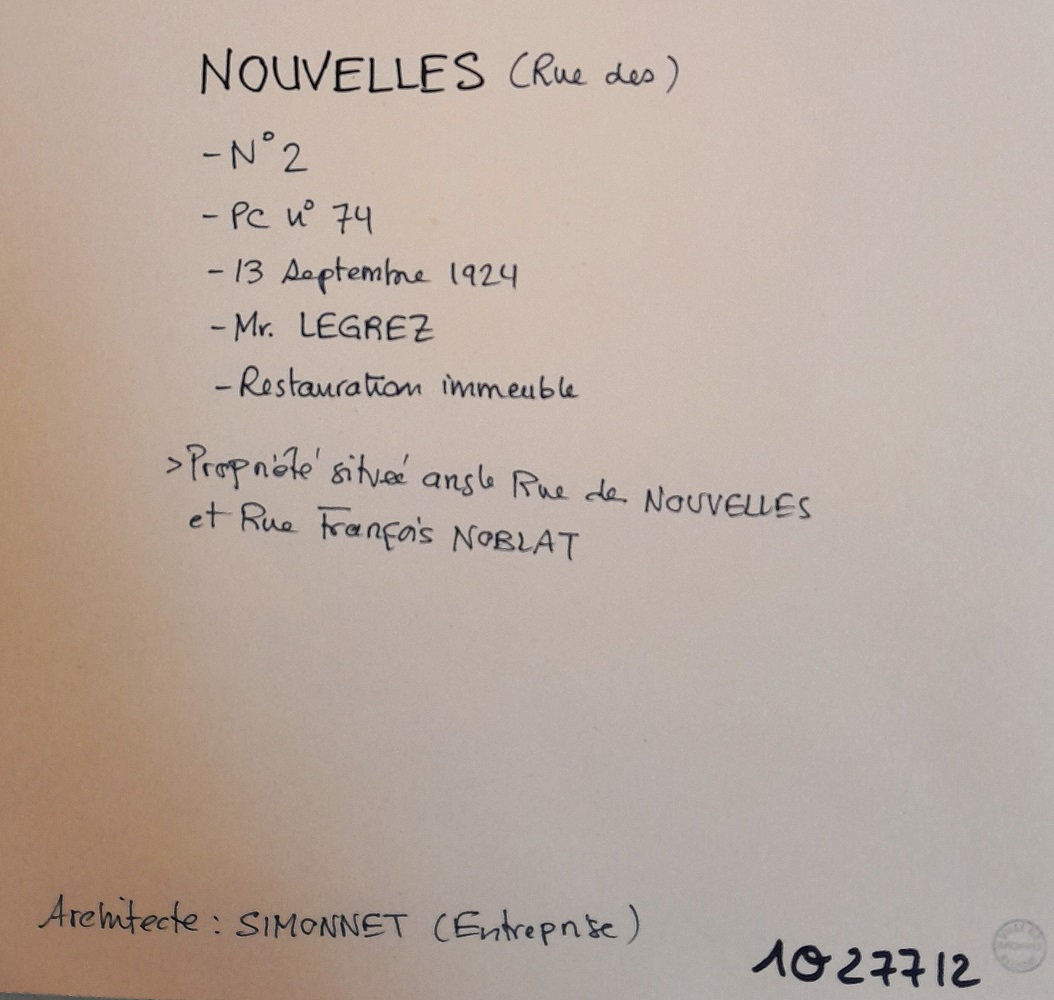 NOUVELLES (Rue des)
- N° 2
- PC n° 74
- 13 Septembre 1924
- Mr. LEGREZ
- Restauration immeuble
> Propriété située angle Rue de NOUVELLES
et Rue François NOBLAT
Architecte : SIMONNET (Entreprise)
1O27712